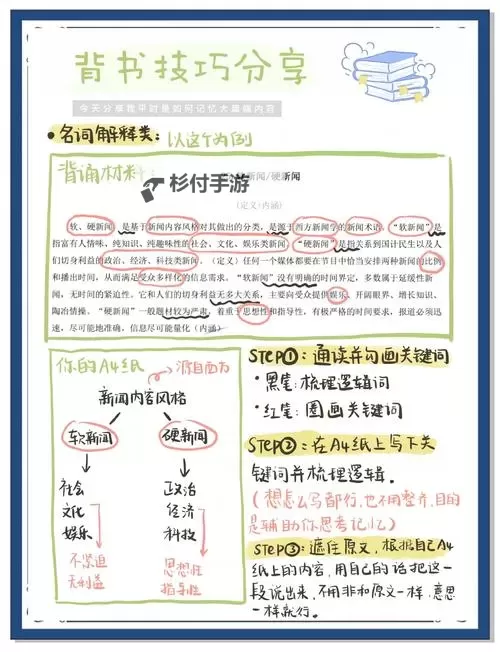 背书技巧分享
今天分享我平时是如何记忆大篇幅内容
•名词解释类：以这个为例
背诵材料：
杉付手游
新闻/硬新闻
（定义+内涵）
软、硬新闻，是基于新闻内容风格对其做出的分类，是源于西方新闻学的新闻术语。“软新闻”是
指富有人情味，纯知识、纯趣味性的社会、文化、娱乐类新闻。“硬新闻”是指关系到国计民生以及人
们切身利益的政治、经济、科技类新闻。（定义）任何一个媒体都要在节目中恰当安排两种新闻的比例
和播出时间，从而满足受众多样化的信息需求。“软新闻”没有明确的时间界定，多数属于延缓性新
闻，无时间的紧迫性。它和人们的切身利益无多大关系，主要向受众提供娱乐、开阔眼界、增长知识、
陶冶情操。“硬新闻”一般题材较为严肃，着重于思想性和指导性，有极严格的时间要求，报道必须迅
速，尽可能地准确，信息尽可能量化（内涵）
你的A4纸
源自西方
新闻内容风格
软新闻 硬新闻
社会 政治
文化 经济
娱乐 科技
不紧迫 思想性
无利益 指导性
STEP①：通读并勾画关键词
•黑笔：梳理逻辑词
•红笔：圈画关键词
STEP②：在A4纸上写下关
键词并梳理逻辑。
（想怎么写都行，也不用整齐，目的
是辅助你思考记忆）
STEP③：遮住原文，根据自己A4
纸上的内容，用自己的话把这一
段说出来，不用非和原文一样，意思
一样就行。